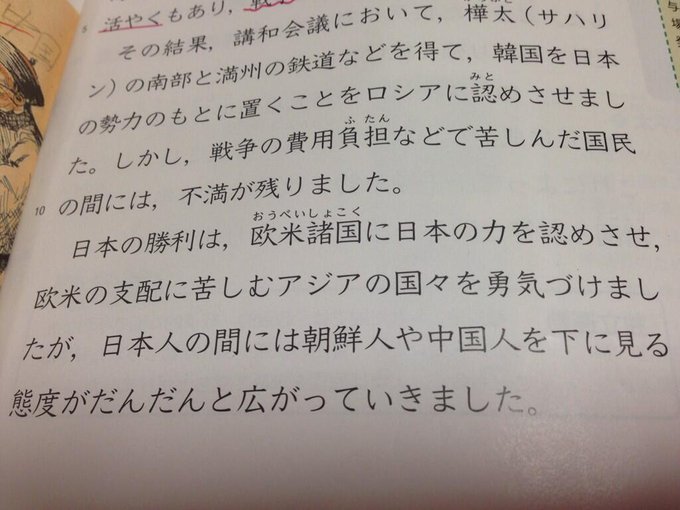 活やくもあり，戦
その結果，講和会議において，樺太（サハリ
ン）の南部と満州の鉄道などを得て，韓国を日本
の勢力のもとに置くことをロシアに認めさせまし
た。しかし，戦争の費用負担などで苦しんだ国民
の間には，不満が残りました。
日本の勝利は，欧米諸国に日本の力を認めさせ，
欧米の支配に苦しむアジアの国々を勇気づけまし
たが，日本人の間には朝鮮人や中国人を下に見る
態度がだんだんと広がっていきました。